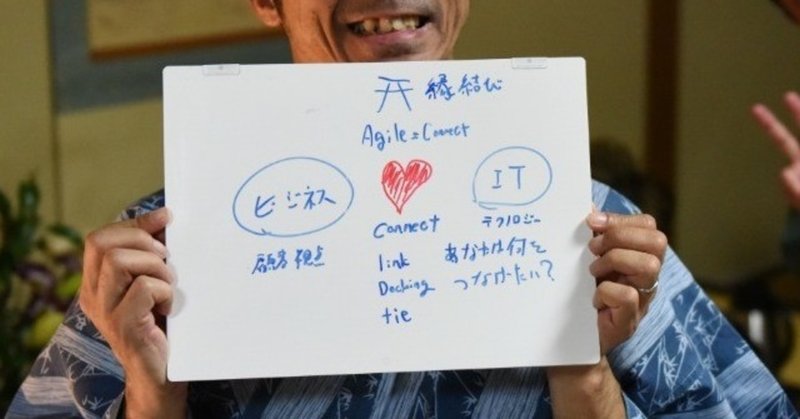 縁結び
Agile = Connect
ビジネス
顧客視点
connect
link
Docking
tie
IT
テクノロジー
あなたは何を
つなぎたい?